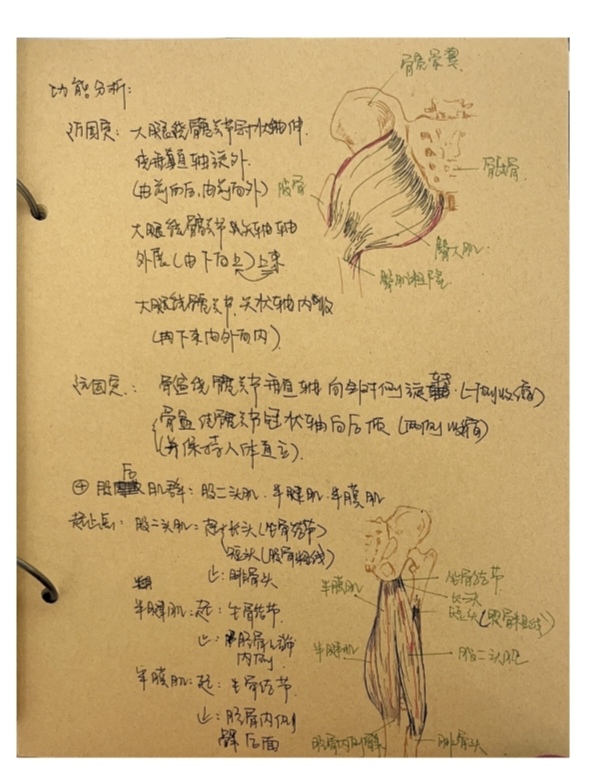 功能分析:
髂骨翼
近固定: 大腿绕髋关节冠状轴伸.
绕垂直轴旋外.
(由前向后,由前向外)
骶骨
股骨
大腿绕髋关节矢状轴
外展(由下向上)上束
臀大肌
臀肌粗隆
大腿绕髋关节.矢状轴内收
(下束由外向内)
远固定: 骨盆绕髋关节垂直轴向对侧旋转.(一侧收缩)
骨盆绕髋关节冠状轴向后倾(两侧收缩)
(并保持人体直立).
④股后肌群: 股二头肌.半腱肌.半膜肌
起止点: 股二头肌: 起 长头(坐骨结节)
短头(股骨粗线)
止: 腓骨头
半腱肌: 起: 坐骨结节.
止: 胫骨上端
内侧
半膜肌: 起: 坐骨结节.
止: 胫骨内侧
髁后面
半膜肌
坐骨结节
长头
短头(股骨粗线)
半腱肌
股二头肌
胫骨内侧髁
腓骨头